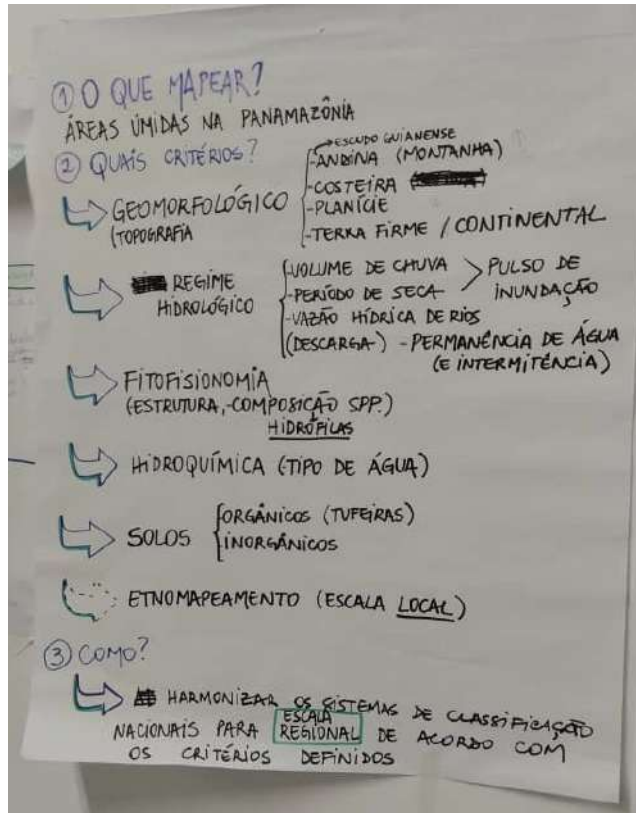 ① O QUE MAPEAR?
ÁREAS ÚMIDAS NA PANAMAZÔNIA
② QUAIS CRITÉRIOS?
→ ESCUDO GUIANENSE
-ANDINA (MONTANHA)
-COSTEIRA
-PLANÍCIE
-TERRA FIRME / CONTINENTAL
GEOMORFOLÓGICO
(TOPOGRAFIA
REGIME
HIDROLÓGICO
-VOLUME DE CHUVA
-PERÍODO DE SECA
PULSO DE
INUNDAÇÃO
-VAZÃO HÍDRICA DE RIOS
(DESCARGA) - PERMANÊNCIA DE ÁGUA
(E INTERMITÊNCIA)
FITOFISIONOMIA
(ESTRUTURA,-COMPOSIÇÃO SPP.)
HIDRÓFILAS
HIDROQUÍMICA (TIPO DE ÁGUA)
SOLOS
ORGÂNICOS (TUFEIRAS)
INORGÂNICOS
ETNOMAPEAMENTO (ESCALA LOCAL)
③ COMO?
HARMONIZAR OS SISTEMAS DE CLASSIFICAÇÃO
NACIONAIS PARA ESCALA REGIONAL DE ACORDO COM
OS CRITÉRIOS DEFINIDOS